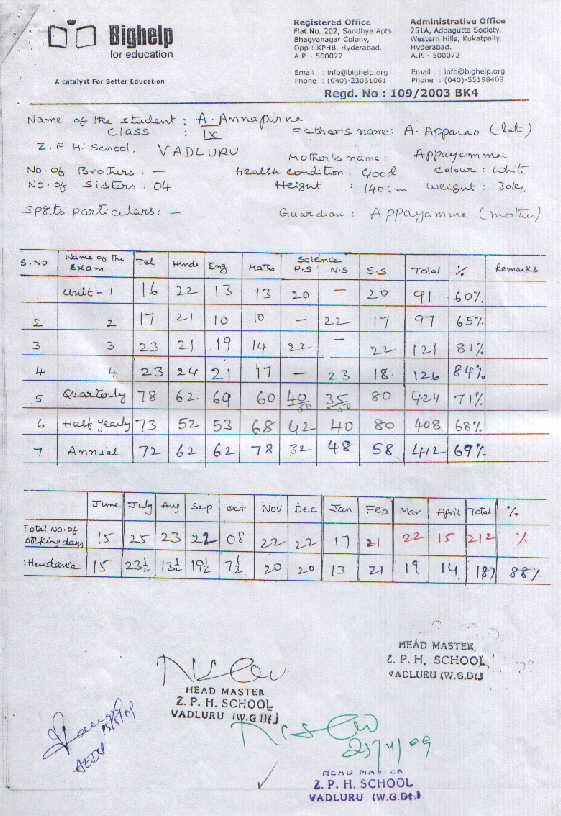 Bighelp
for education
A catalyst For Better Education
Registered Office
Flat No. 202, Sandhya Apts
Bhagyanagar Colony,
Opp : KPHB, Hyderabad.
A.P. - 500072
Email : info@bighelp.org
Phone : (040)-23051061
Administrative Office
251A, Addagutta Society,
Western Hills, Kukatpally,
Hyderabad.
A.P. - 500072
Email : info@bighelp.org
Phone : (040)-55198409
Regd. No : 109/2003 BK4
Name of the student : A. Annapurna
Class : IX Father's name: A. Apparao (late)
Z. P. H. School, VADLURU Mother's name : Appayamma
No. of Brothers : - Health condition : Good Colour : White
No. of Sisters : 04 Height : 140cm Weight : 30k
Sports particulars: - Guardian : Appayamma (mother)
S.no Name of the Exam Tel Hindi Eng Maths Science P.S N.S S.S Total % Remarks
Unit - 1 16 22 13 13 20 - 20 91 60%
2 2 17 21 10 10 - 22 17 97 65%
3 3 23 21 19 14 22 - 22 121 81%
4 4 23 24 21 17 - 23 18 126 84%
5 Quarterly 78 62 69 60 40/50 35/50 80 424 71%
6 Half yearly 73 52 53 68 42 40 80 408 68%
7 Annual 72 62 62 78 32 48 58 412 69%
June July Aug Sep Oct Nov Dec Jan Feb Mar April Total %
Total No. of
working days 15 25 23 22 08 22 22 17 21 22 15 212 %
15 23½ 13½ 19½ 7½ 20 20 13 21 19 14 187 88%
HEAD MASTER
Z. P. H. SCHOOL,
VADLURU (W.G.Dt.)
HEAD MASTER
Z. P. H. SCHOOL
VADLURU (W.G.Dt.)
HEAD MASTER
Z. P. H. SCHOOL
VADLURU (W.G.Dt.)